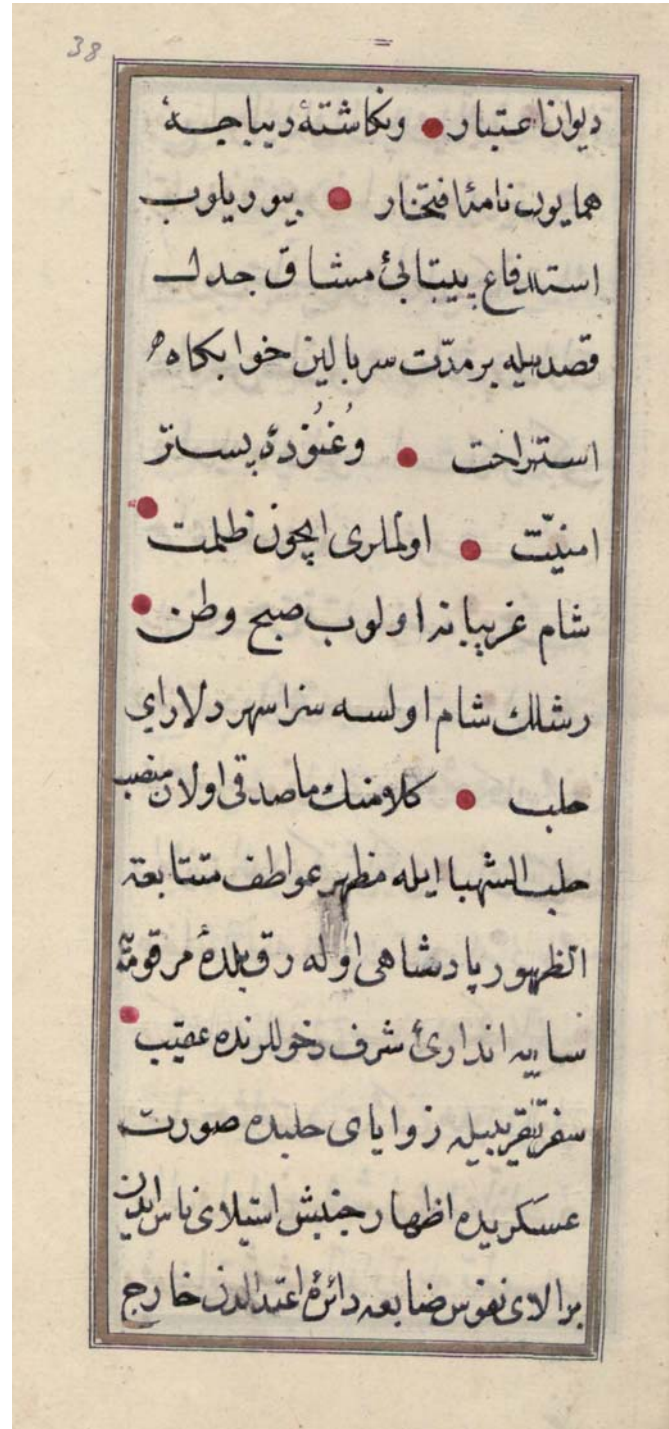 38
دیوان اعتبار ● ونکاشتهٔ دیباجهٔ
همایون نامهٔ افتخار ● بیوریلوب
استدفاع بیتابئ مشاق جدل
قصدیله بر مدّت سر بالین خوابکاه
استراحت ● وغُنُودهٔ بستر
امنیّت ● اولملری ایچون ظلمت ●
شام غریباندا اولوب صبح وطن ●
رشك شام اولسه سزا سهر دلارای
حلب ● کلامنك ماصدقی اولان منصب
حلب الشهبا ایله مظهر عواطف متتابعة
الظهور پادشاهی اوله رق بلدهٔ مرقومه
سایه اندازئ شرف دخوللرنده عقیب ●
سفر تقریبیله زوایای حلبده صورت
عسکریده اظهار جنبش استیلای ناس ایدن
بر الای نفوس ضایعه دائرهٔ اعتدالدن خارج